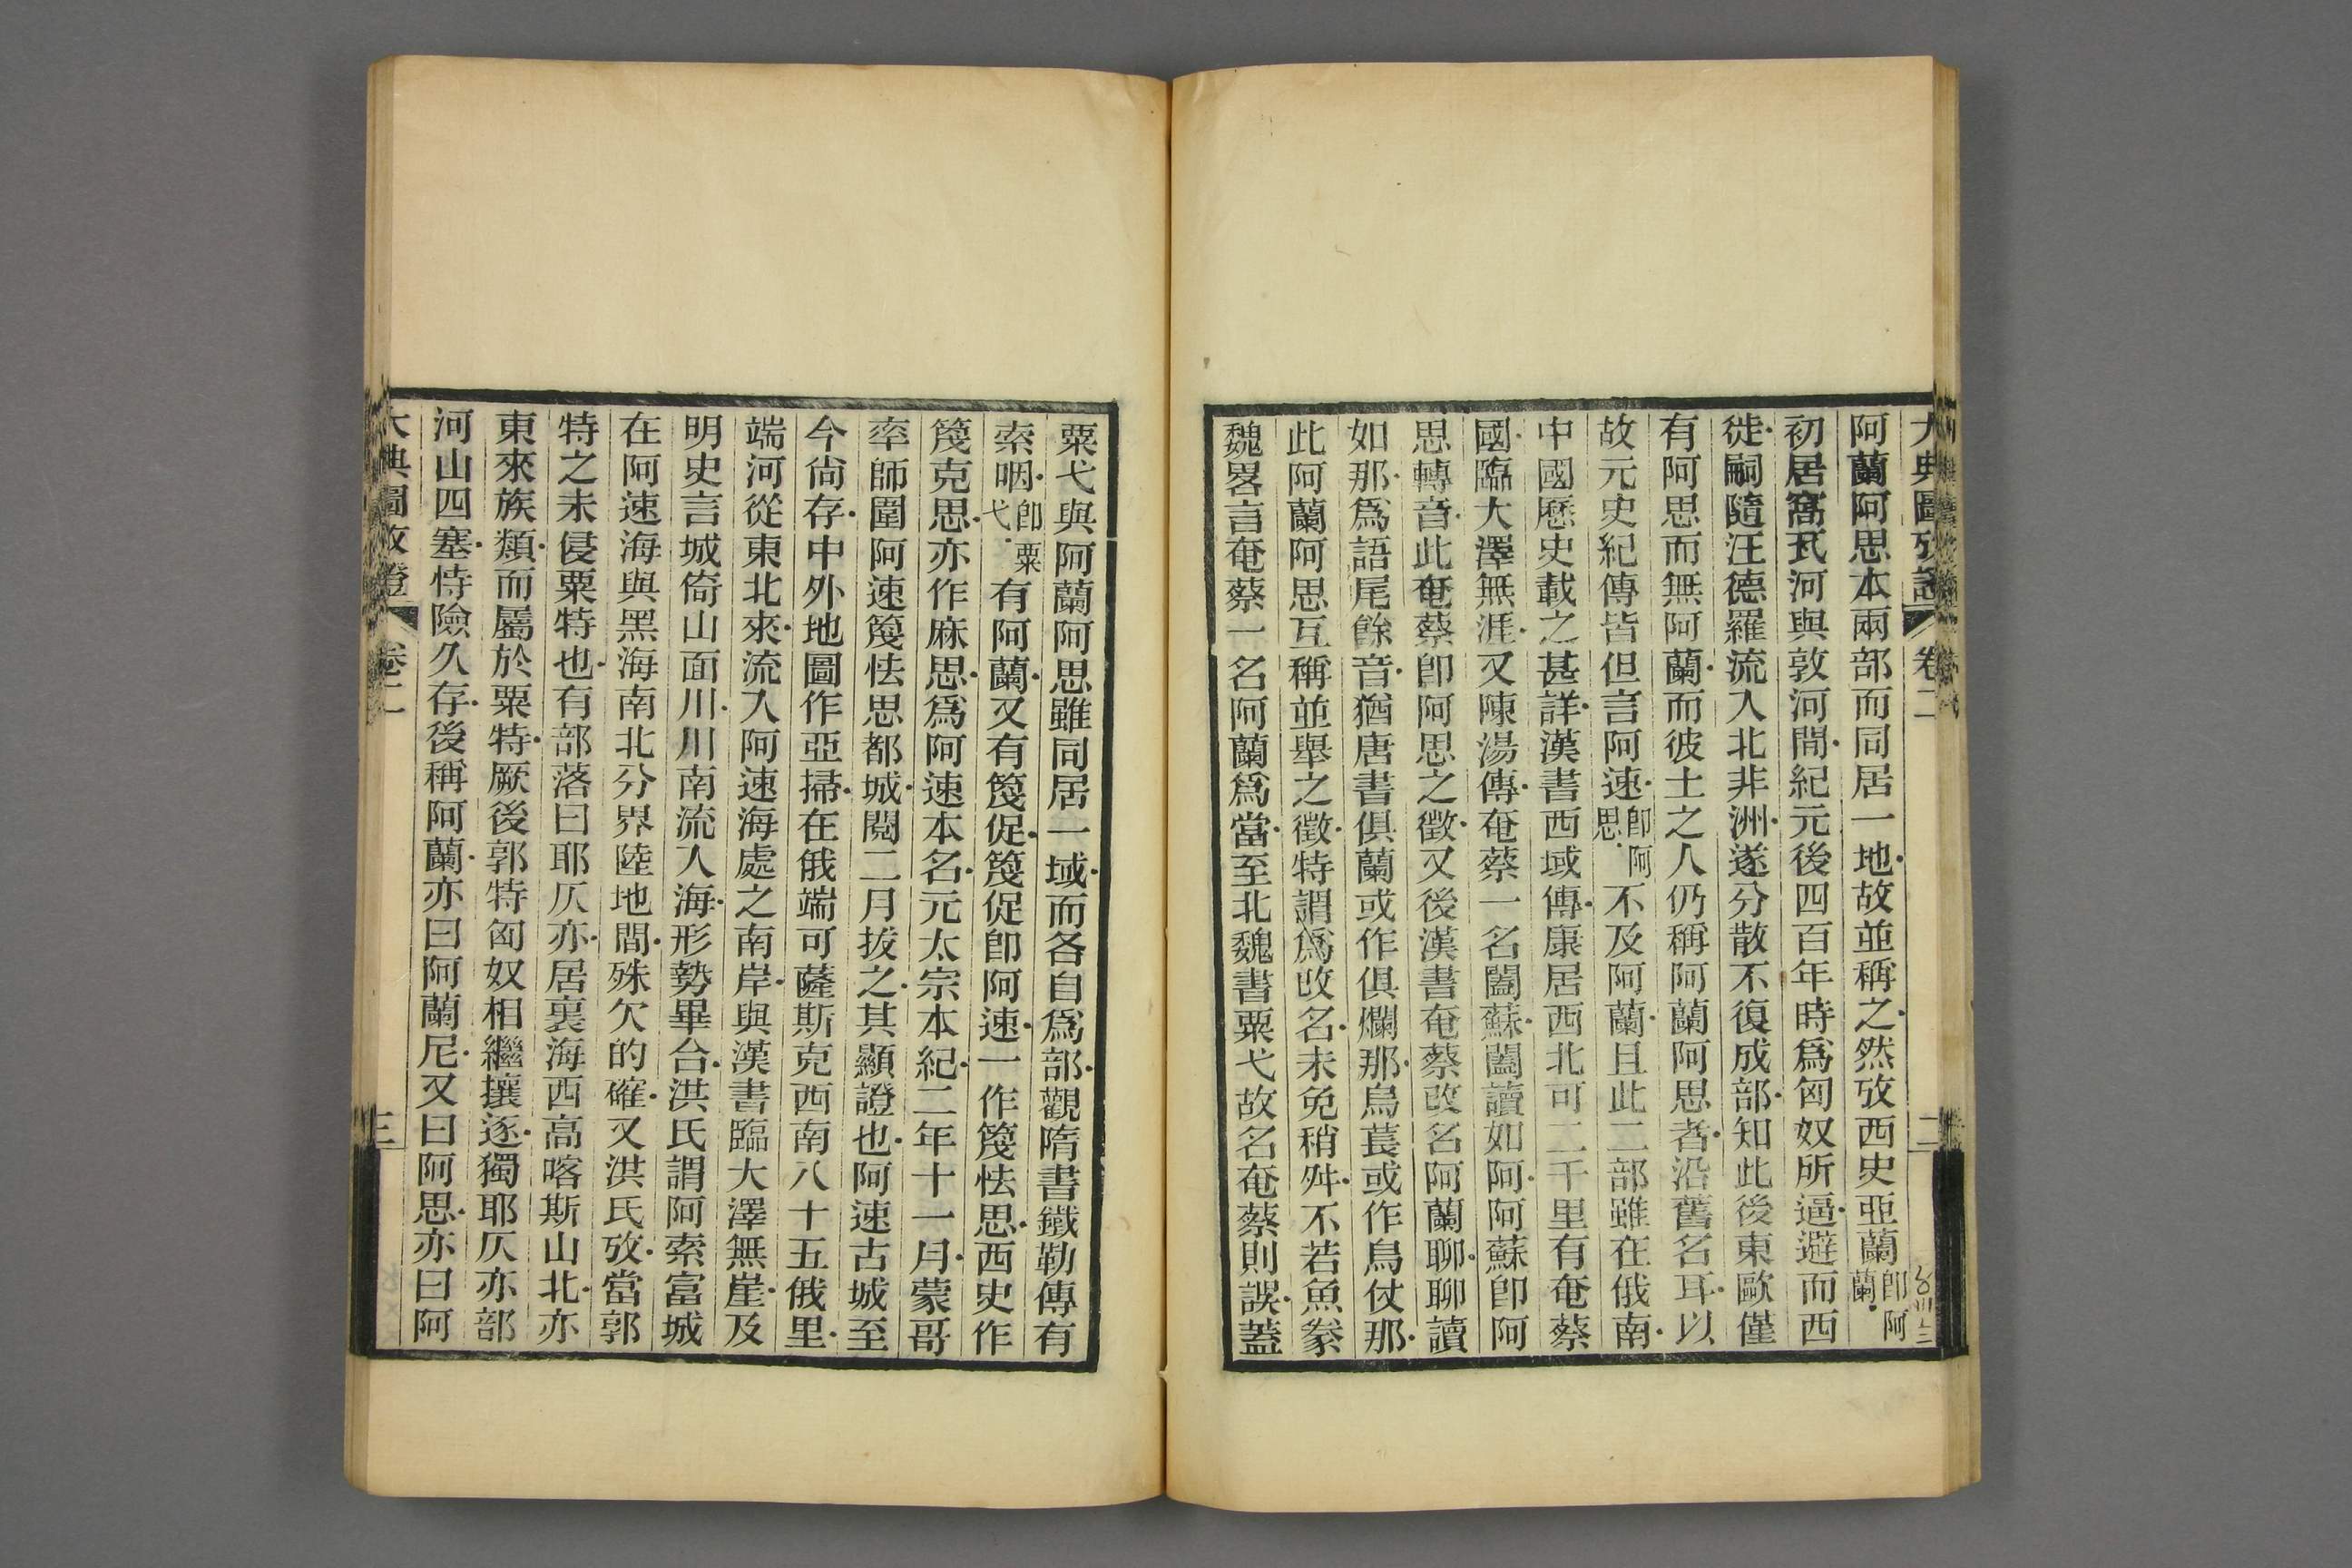 大典圖攷證 卷二 二
阿蘭阿思本兩部而同居一地故並稱之然攷西史亞蘭卽阿蘭
初居窩瓦河與敦河閒紀元後四百年時爲匈奴所逼避而西
徙嗣隨汪德羅流入北非洲遂分散不復成部知此後東歐僅
有阿思而無阿蘭而彼土之人仍稱阿蘭阿思者沿舊名耳以
故元史紀傳皆但言阿速卽阿思不及阿蘭且此二部雖在俄南
中國歷史載之甚詳漢書西域傳康居西北可二千里有奄蔡
國臨大澤無涯又陳湯傳奄蔡一名闔蘇闔讀如阿阿蘇卽阿
思轉音此奄蔡卽阿思之徵又後漢書奄蔡改名阿蘭聊聊讀
如那爲語尾餘音猶唐書俱蘭或作俱爛那烏萇或作烏仗那
此阿蘭阿思互稱並舉之徵特謂爲改名未免稍舛不若魚豢
魏畧言奄蔡一名阿蘭爲當至北魏書粟弋故名奄蔡則誤蓋
粟弋與阿蘭阿思雖同居一域而各自爲部觀隋書鐵勒傳有
索咽卽粟弋有阿蘭又有篾促篾促卽阿速一作篾怯思西史作
篾克思亦作麻思爲阿速本名元太宗本紀二年十一月蒙哥
率師圍阿速篾怯思都城閱二月拔之其顯證也阿速古城至
今尙存中外地圖作亞掃在俄端可薩斯克西南八十五俄里
端河從東北來流入阿速海處之南岸與漢書臨大澤無崖及
明史言城倚山面川川南流入海形勢畢合洪氏謂阿索富城
在阿速海與黑海南北分界陸地閒殊欠的確又洪氏攷當郭
特之未侵粟特也有部落曰耶仄亦居裏海西高喀斯山北亦
東來族類而屬於粟特厥後郭特匈奴相繼攘逐獨耶仄亦部
河山四塞恃險久存後稱阿蘭亦曰阿蘭尼又曰阿思亦曰阿
大典圖攷證 卷二 三